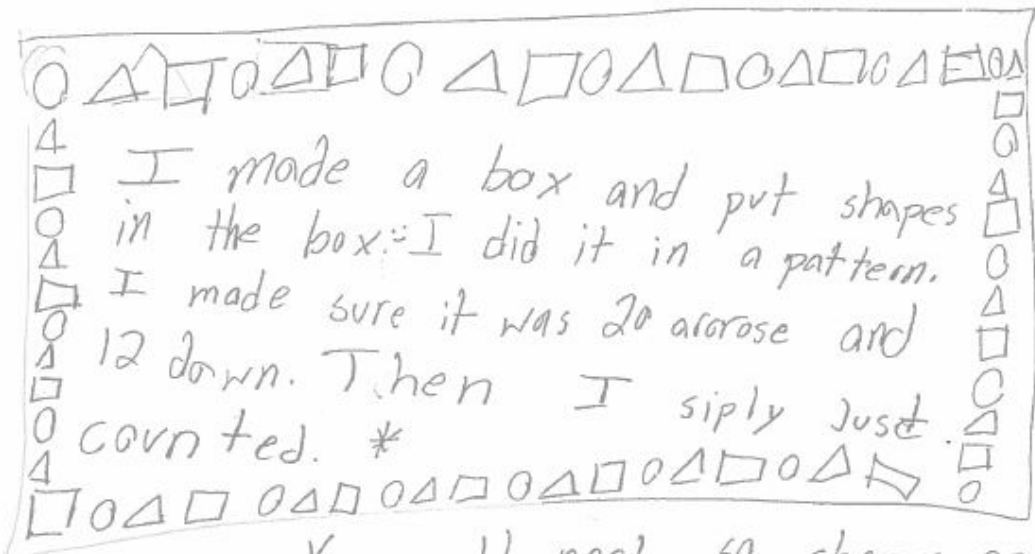 I made a box and put shapes
in the box. I did it in a pattern.
I made sure it was 20 acrose and
12 down. Then I siply Just
counted. *